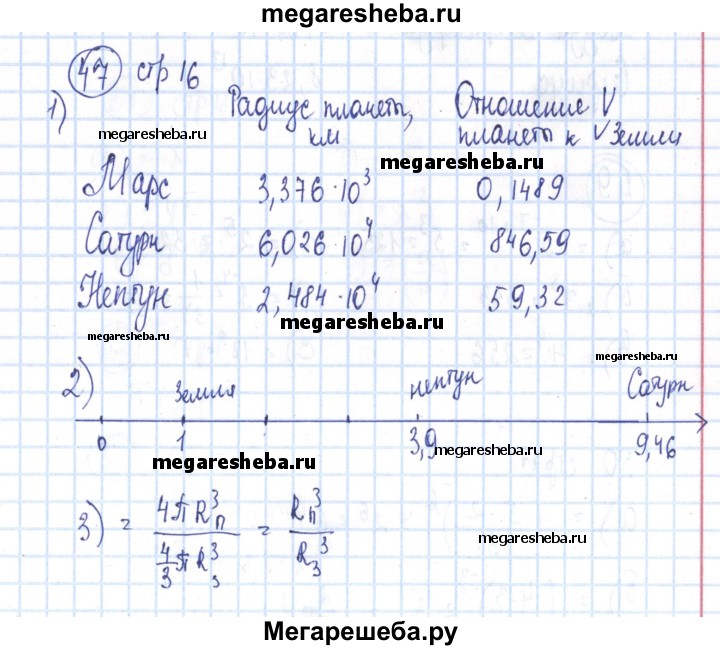 megaresheba.ru
47 стр 16
1) Радиус планеты, Отношение V
км планеты к V Земли
megaresheba.ru
megaresheba.ru
Марс 3,376·10³ 0,1489
Сатурн 6,026·10⁴ 846,59
Нептун 2,484·10⁴ 59,32
megaresheba.ru
megaresheba.ru
megaresheba.ru
2) Земля нептун Сатурн
0 1 3,9 9,46
megaresheba.ru
megaresheba.ru
3) = 4πRп³ / 4/3 πR³з = Rп³ / Rз³
megaresheba.ru
Мегарешеба.ру